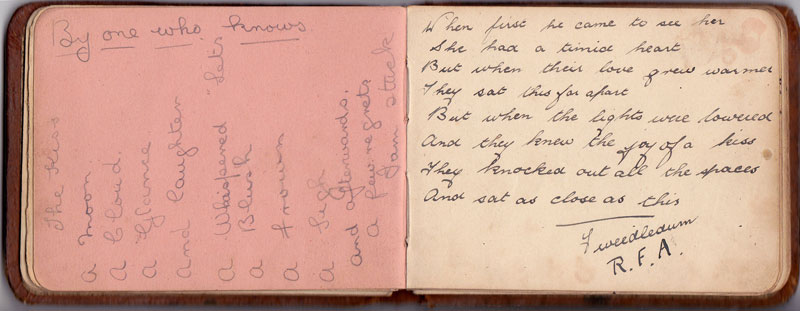 By one who knows
The Kiss
A Moon
A Cloud.
A Glance
And laughter
A Whispered "Let's"
A Blush
A Frown
A Sigh
And afterwards.
A few regrets
When first he came to see her
She had a timid heart
But when their love grew warmer
They sat this far apart
But when the lights were lowered
And they knew the joy of a kiss
They knocked out all the spaces
And sat as close as this
Tweedledum
R.F.A.